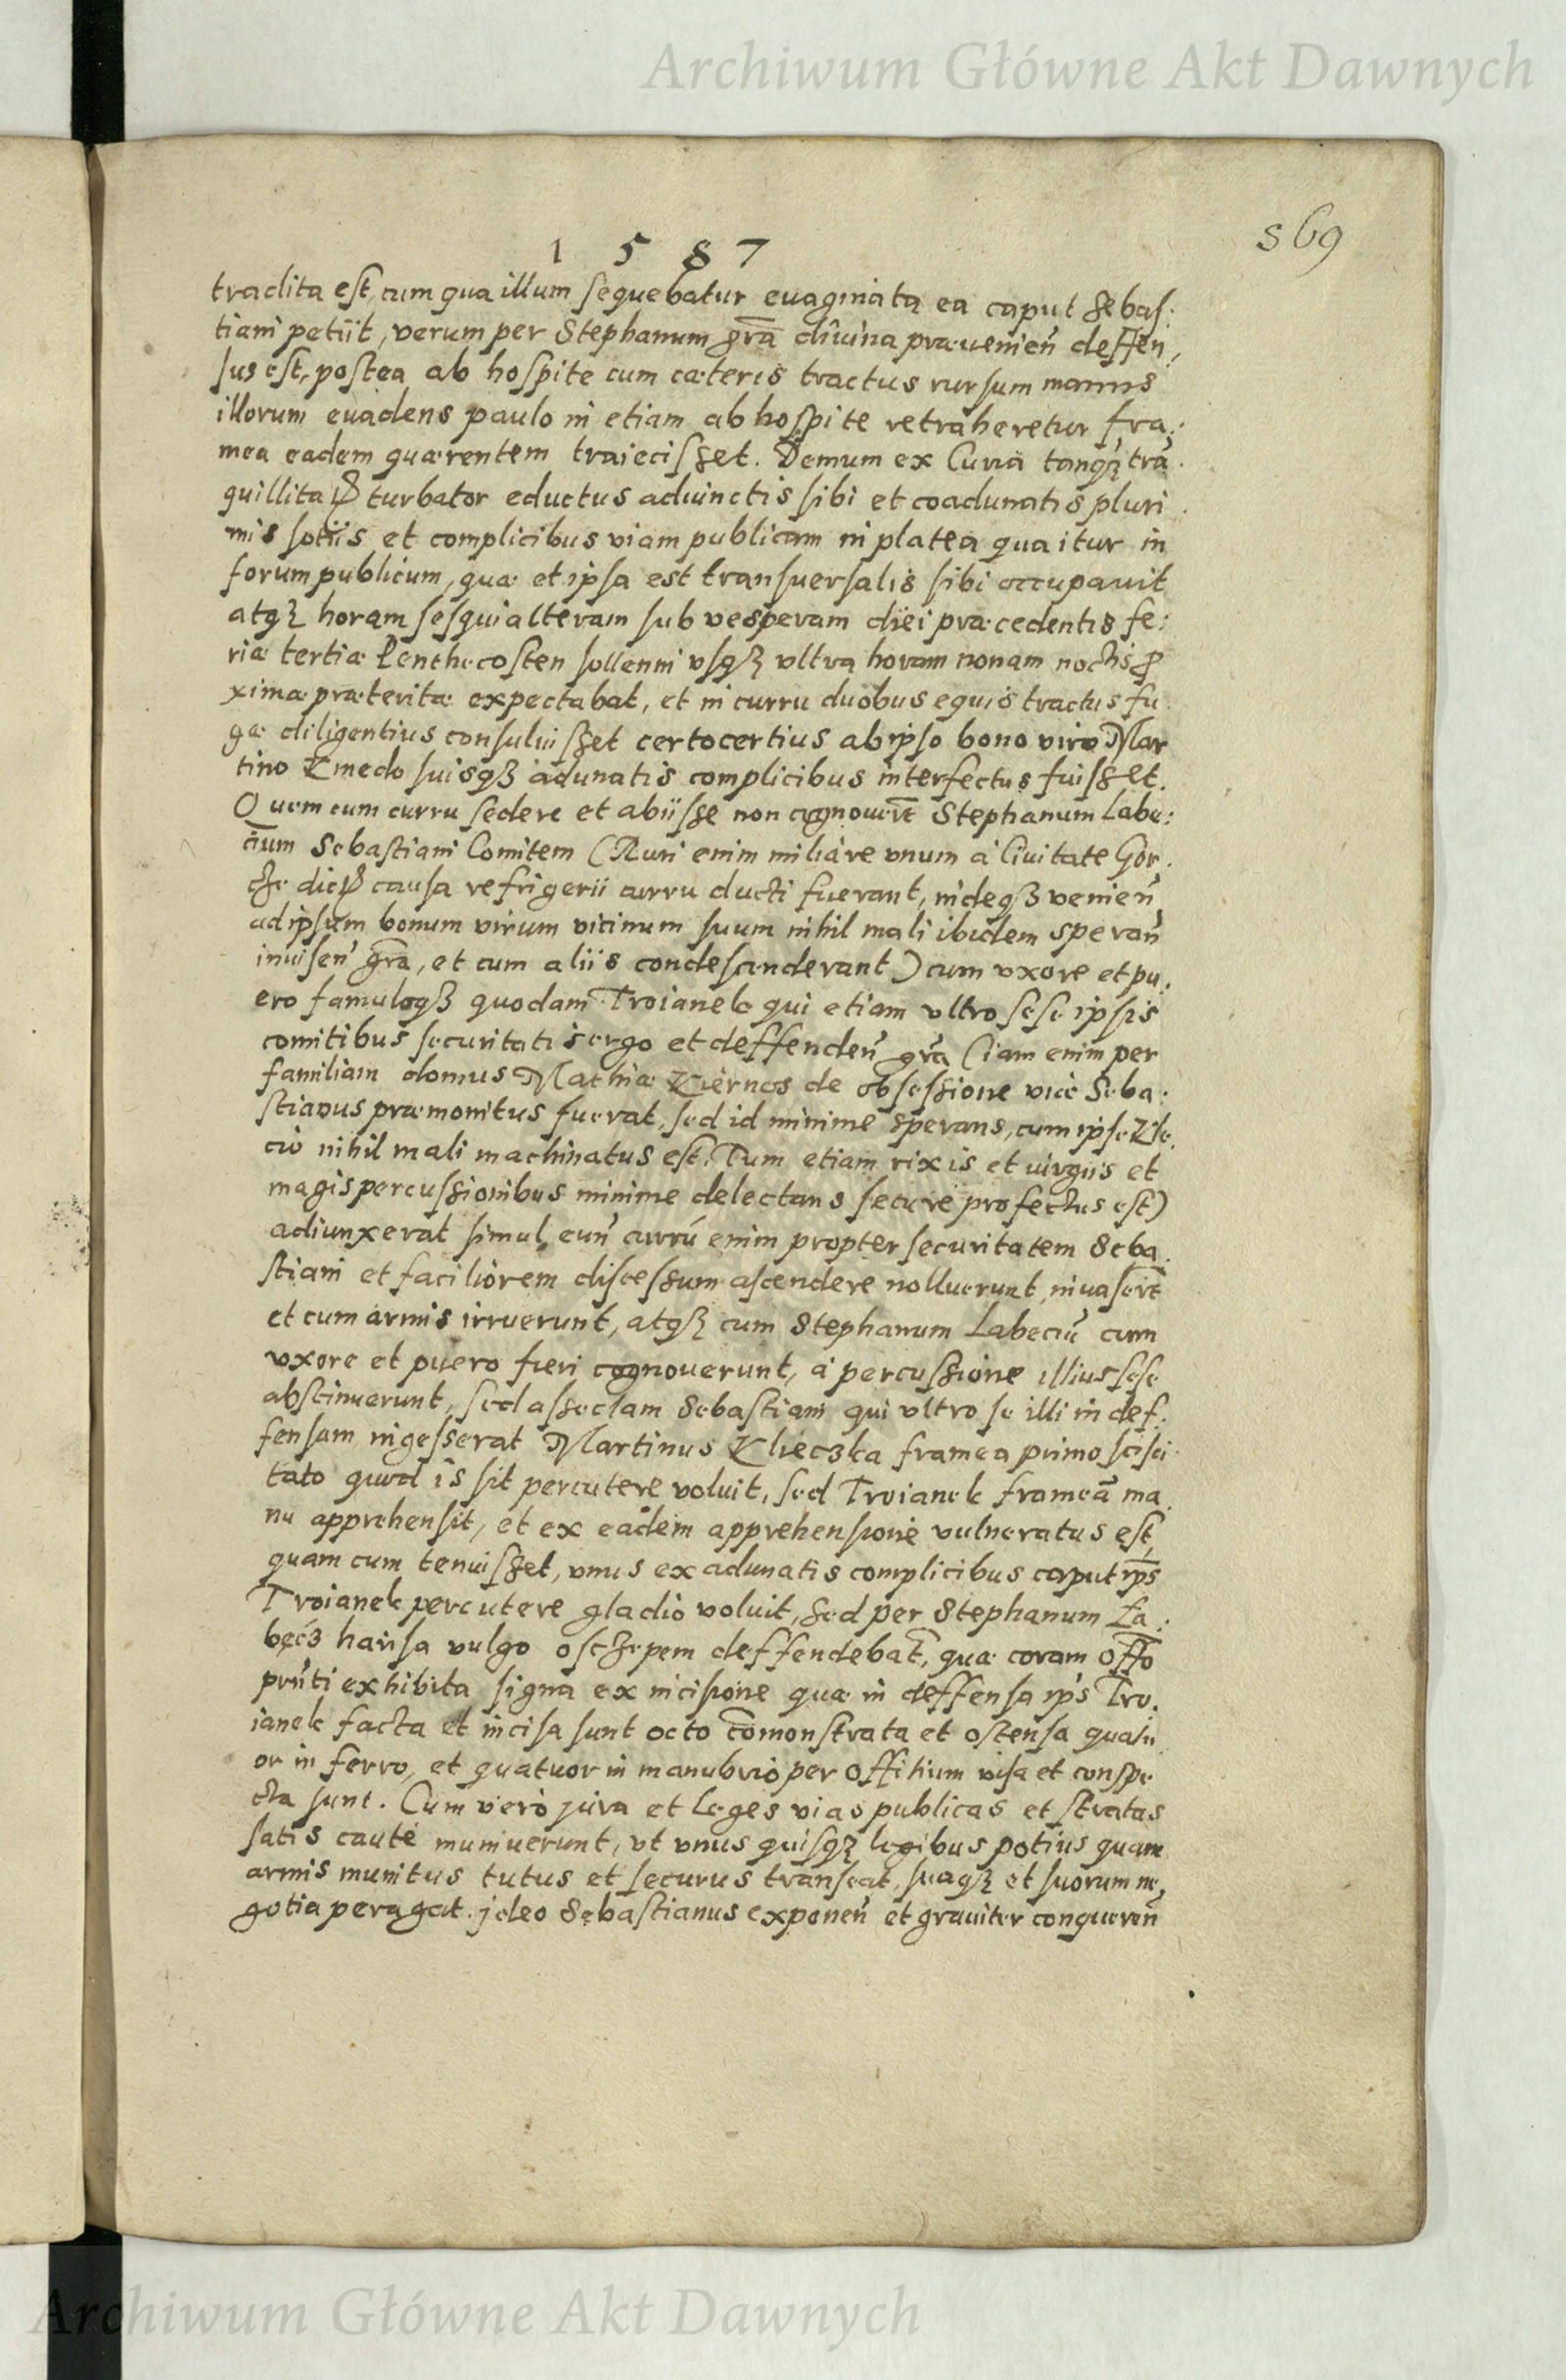 Archiwum Główne Akt Dawnych
569
1 5 8 7
tradita est, cum qua illum sequebatur euaginata ea caput Sebas:
tiani petiit, verum per Stephanum gr̃a diuina præuenien̄ deffen,
sus est, postea ab hospite cum cæteris tractus rursum manus
illorum euadens paulo ni etiam ab hospite retraheretur fra:
mea eadem quærentem traiecisset. Demum ex Curia tanqȝ tra.
quillitaꝭ turbator eductus adiunctis sibi et coadunatis pluri
mis sotiis et complicibus viam publicam in platea qua itur in
forum publicum, quæ et ipsa est transuersalis sibi occupauit
atqȝ horam sesquialteram sub vesperam diei præcedentis fe:
riæ tertiæ Penthecosten sollenni vsqȝ vltra horam nonam noctis ꝓ
ximæ præteritæ expectabat, et ni curru duobus equis tractus fu
gæ diligentius consuluisset certocertius ab ipso bono viro Mar
tino Kmedo suisqȝ adunatis complicibus interfectus fuisset.
Quem cum curru sedere et abiisse non cognouer̃t Stephanum Labe:
cium Sebastiani Comitem (Ruri enim miliare vnum a Ciuitate Gor.
cze diciꝭ causa refrigerii curru ducti fuerant, indeqȝ venien̄
ad ipsum bonum virum vicinum suum nihil mali ibidem speran̄
inuisen̄ gr̃a, et cum aliis condescenderant) cum vxore et pu:
ero famuloqȝ quodam Troianek qui etiam vltro sese ipsis
comitibus securitatis ergo et deffenden̄ gr̃a (iam enim per
familiam domus Mathiæ Kiernos de obsessione viæ Seba:
stianus præmonitus fuerat, sed id minime sperans, cum ipse Kle.
cio nihil mali machinatus est. Tum etiam rixis et iurgiis et
magis percussionibus minime delectans secure profectus est)
adiunxerat simul eun̄ currú enim propter securitatem Seba.
stiani et faciliorem discessum ascendere nolluerunt inuaser̃t
et cum armis irruerunt, atqȝ cum Stephanum Labeciū cum
vxore et puero fieri cognouerunt, á percussione illius sese
abstinuerunt, sed asseclam Sebastiani qui vltro se illi in def.
fensam ingesserat Martinus Klieczka framea primo scisci
tato quid is sit percutere voluit, sed Troianek frameā ma.
nu apprehensit, et ex eadem apprehensione vulneratus est,
quam cum tenuisset, vnus ex adunatis complicibus caput ip̃s
Troianek percutere gladio voluit, sed per Stephanum La:
bęcz hansa vulgo osczepem deffendebat̃, quæ coram Offo
pr̃nti exhibita signa ex incisione quæ in deffensa ip̃s Tro.
ianek facta et incisa sunt octo com̄onstrata et ostensa quatu
or in ferro, et quatuor in manubrio per Offitium visa et conspe
cta sunt. Cum vero jura et leges vias publicas et stratas
satis cauté muniuerunt, vt vnus quisqȝ legibus potius quam
armis munitus tutus et securus transeat, suaqȝ et suorum ne,
gotia peragat. jdeo Sebastianus exponen̄ et grauiter conqueren̄
Archiwum Główne Akt Dawnych